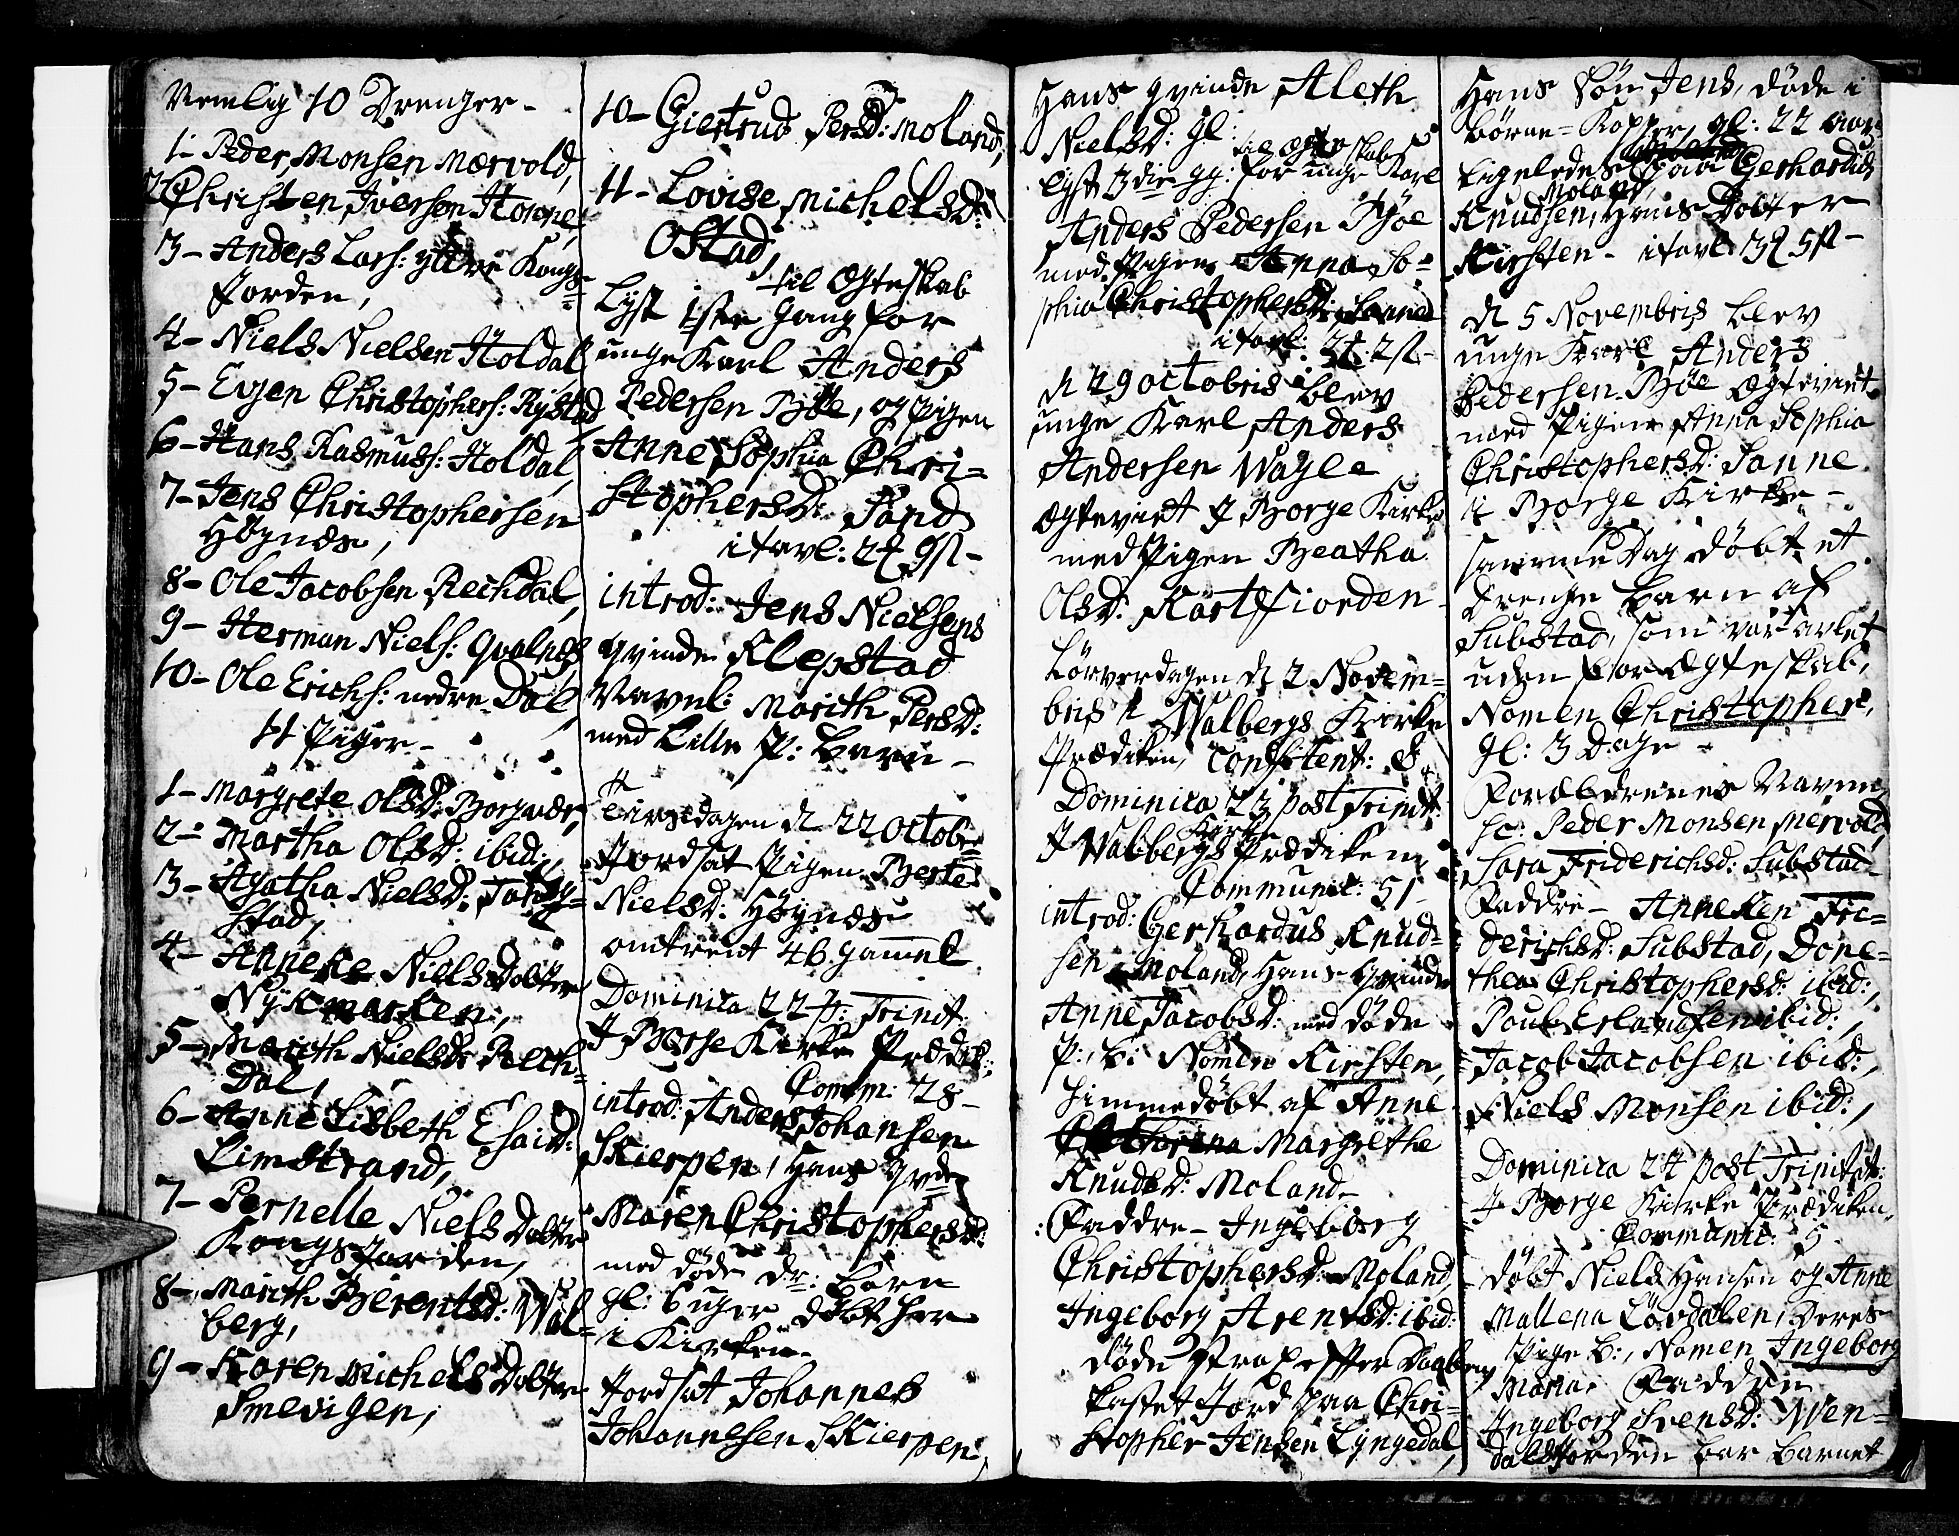 Nemlig 10 Drenger -
1 - Peder Monsen Mærvold,
2 Christen Iversen Howne,
3 - Anders Lars: yttre Kongs=
Jorden,
4 - Niels Nielsen Holdal
5 - Evjen Christophers: Rystad
6 - Hans Rasmuss: Holdal,
7 - Jens Christophersen
Høynæs,
8 - Ole Jacobsen Rechdal,
9 - Herman Niels: Qvalnes
10 - Ole Erichs: nedre Dal,
11 Piger -
1 - Margrete OlsD: Borgvær,
2 - Martha OlsD: ibid:,
3 - Agatha NielsD: Tang=
stad,
4 - Anneke Niels Dotter
Nykmarken,
5 - Marith NielsD: Rech=
Dal,
6 - Anne Lisbeth EsaiD:
Limstrand,
7 - Pernelle Niels Dotter
Kongs Jorden,
8 - Marith BerentsD: Wal=
berg,
9 - Karen Michels Dotter
Smevigen,
10 - Giertrud PersD: Moland,
11 - Lovise MichelsD:
Ostad,
til Ægteskab
Lyst 1ste Gang for
unge Karl Anders
Pedersen Bøe, og Pigen
Anne Sophia Chri=
stophersD: Sand
i tavl: 2 9
introd: Jens Nielsens
qvinde Klepstad
Navnl: Marith PersD:
med Lille P: Barn -
Tirsdagen d 22 Octobr
Jordsat Pigen Berte
NielsD: Høynæs
omtrent 46 gammel
Dominica 22 p: Trinit:
I Borge Kirke Prædik:
Comm: 28 -
introd: Anders Johansen
Skierpen, Hans Qvde
Maren ChristophersD:
med døde dr: Barn
gl: 6 uger døbt her
i Kirken -
Jordsat Johannes
Johannesen Skierpen,
Hans qvinde Aleth
NielsD: gl:
til Ægteskab
Lyst 3die gg: for unge Karl
Anders Pedersen Bøe
med Pigen Anna So=
phia ChristophersD: Sanne
i tavl: 2
d 29 Octobris blev
unge Karl Anders
Andersen Wagle
Ægteviet I Borge Kirke
med Pigen Beatha
OlsD: Kartfiorden -
Løverdagen d 2 Novem=
bris I Walbergs Kirke
Prædiken, Confitent: 8
Dominica 23 post Trinit:
Kirke
I Walbergs Prædiken,
Communic: 51 -
introd: Gerhardus Knud=
sen Moland, Hans Qvinde
Anne JacobsD: med døde
P: B: Nomen Kirsten,
Himmedøbt af Anne
Margrethe
KnudsD: Moland -
Faddre - Ingeborg
ChristophersD: Moland,
Ingeborg ArentsD: ibid:
døde strax efter Daaben,
kastet Jord paa Chri=
stopher Jensen Lyngedal,
Hans Søn Jens, døde i
børne=Kopper, gl: 22
Ligeledes paa Gerhardus
Moland,
Knudsen, Hans Dotter
Kirsten - i tavl: 3 5
d 5 Novembris blev
unge Karl Anders
Pedersen Bøe Ægteviet
med Pigen Anna Sophia
ChristophersD: Sanne
i Borge Kirke -
samme Dag døbt et
Drenge barn af
Substad, som var avlet
uden for Ægteskab,
Nomen Christopher,
gl: 3 Dage -
Forældrenes Navne
sc: Peder Monsen Mervold,
Sara FriderichsD: Substad -
Faddre - Anneken Fri=
derichsD: Substad, Done=
thea ChristophersD: ibid:,
Poul Erlandsen ibid:,
Jacob Jacobsen ibid:,
Niels Monsen ibid:,
Dominica 24 post Trinit:
I Borge Kirke Prædiken,
Communic: 5
døbt Niels Hansen og Anne
Mallena Løvdalen, Deres
Pige B:, Nomen Ingeborg
Maria. Faddre
Ingeborg SvensD: Wen=
dals Jorden bar Barnet